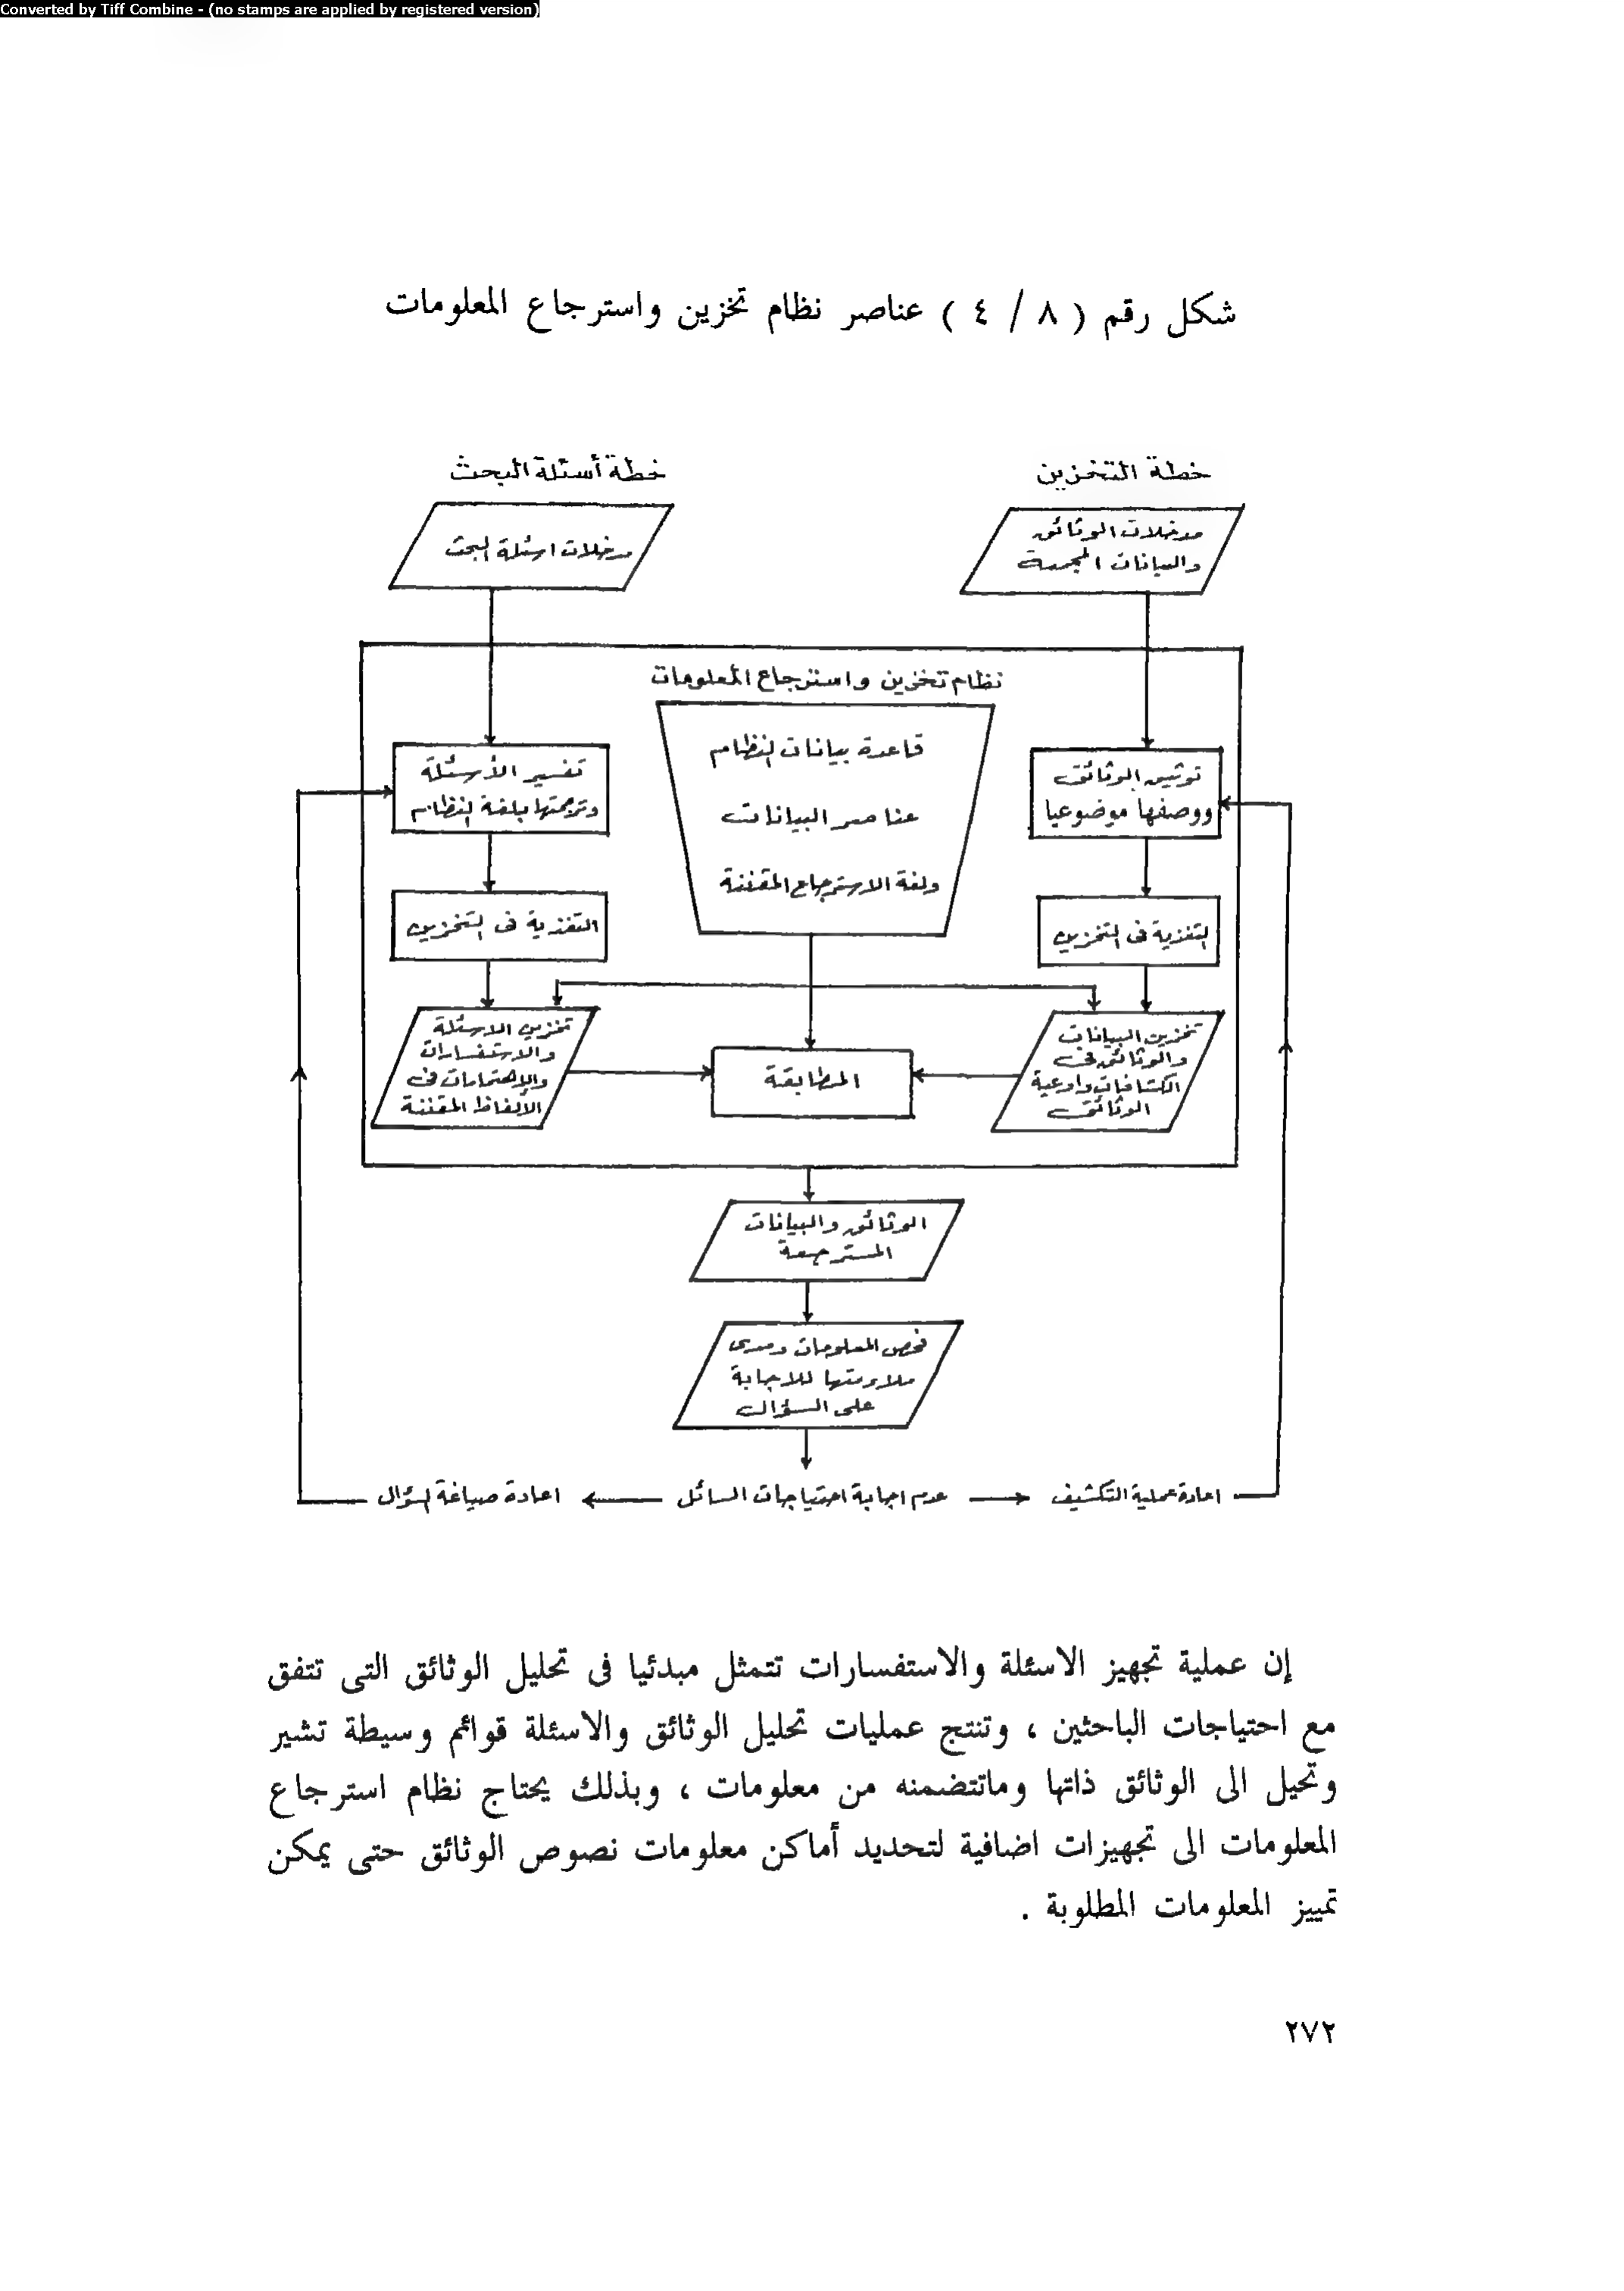 Converted by Tiff Combine - (no stamps are applied by registered version)
شكل رقم ( ٨ / ٤ ) عناصر نظام تخزين واسترجاع المعلومات
خطة التخزين
خطة أسئلة البحث
مدخلات الوثائق
والبيانات المجمعة
مدخلات اسئلة البحث
نظام تخزين واسترجاع المعلومات
توثيق الوثائق
ووصفها موضوعيا
قاعدة بيانات النظام
عناصر البيانات
ولغة الاسترجاع المقننة
تفسير الأسئلة
وترجمتها بلغة النظام
التغذية فى التخزين
التغذية فى التخزين
تخزين البيانات
والوثائق فى
الكشافات واوعية
الوثائق
المطابقة
تخزين الاسئلة
والاستفسارات
والاهتمامات فى
الألفاظ المقننة
الوثائق والبيانات
المسترجعة
فحص المعلومات ومدى
ملاءمتها للاجابة
على السؤال
اعادة عملية التكشيف
عدم اجابة احتياجات السائل
اعادة صياغة السؤال
إن عملية تجهيز الاسئلة والاستفسارات تتمثل مبدئيا فى تحليل الوثائق التى تتفق
مع احتياجات الباحثين ، وتنتج عمليات تحليل الوثائق والاسئلة قوائم وسيطة تشير
وتحيل الى الوثائق ذاتها وماتتضمنه من معلومات ، وبذلك يحتاج نظام استرجاع
المعلومات الى تجهيزات اضافية لتحديد أماكن معلومات نصوص الوثائق حتى يمكن
تمييز المعلومات المطلوبة .
٢٧٢